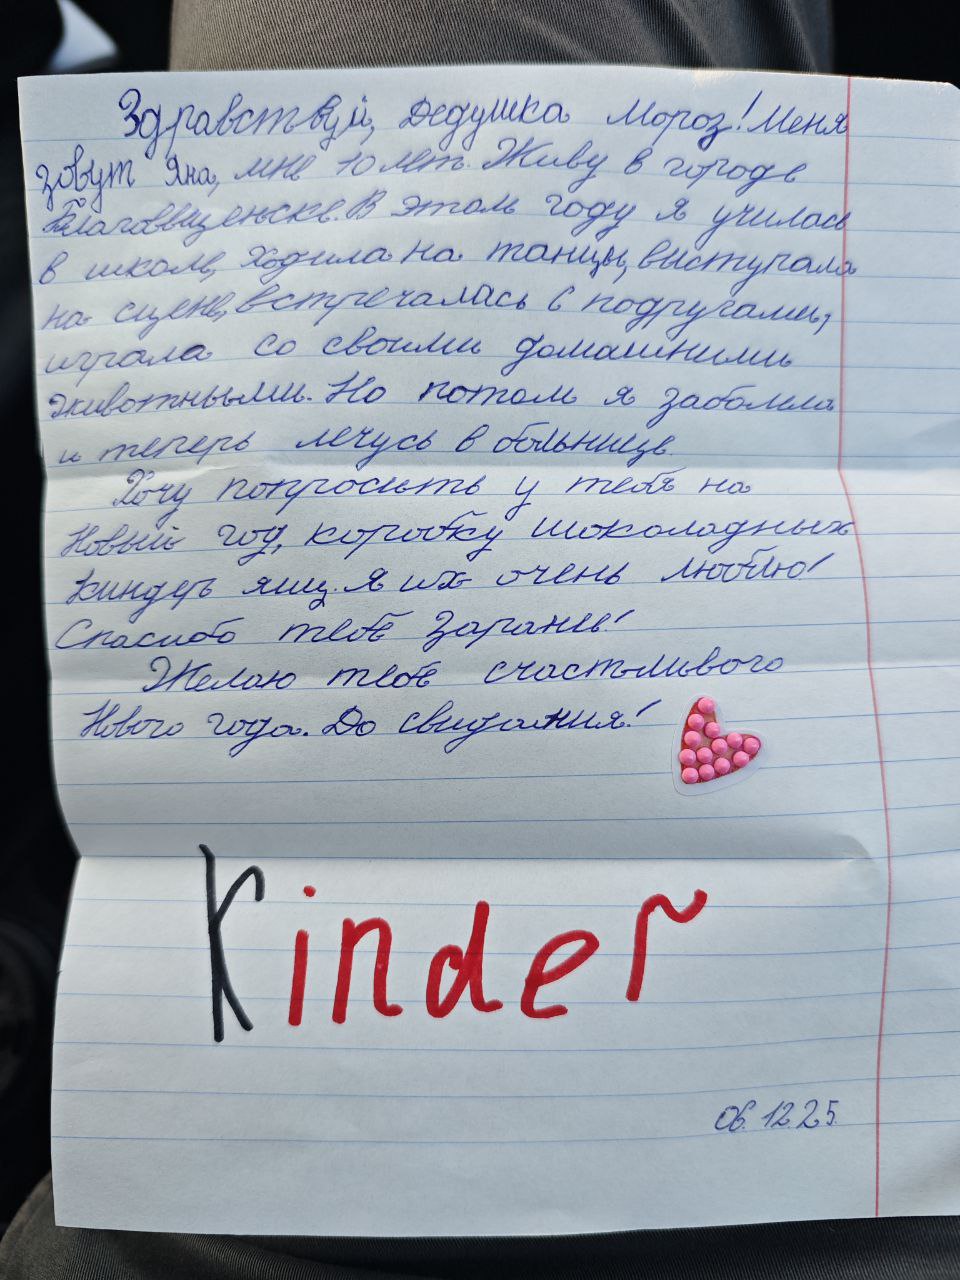 Здравствуй, Дедушка Мороз! Меня
зовут Яна, мне 10 лет. Живу в городе
Благовещенске. В этом году я училась
в школе, ходила на танцы, выступала
на сцене, встречалась с подругами,
играла со своими домашними
животными. Но потом я заболела
и теперь лечусь в больнице.
Хочу попросить у тебя на
Новый год, коробку шоколадных
Киндеръ яиц. Я их очень люблю!
Спасибо тебе заранее!
Желаю тебе счастливого
Нового года. До свидания!
Kinder
06.12.25